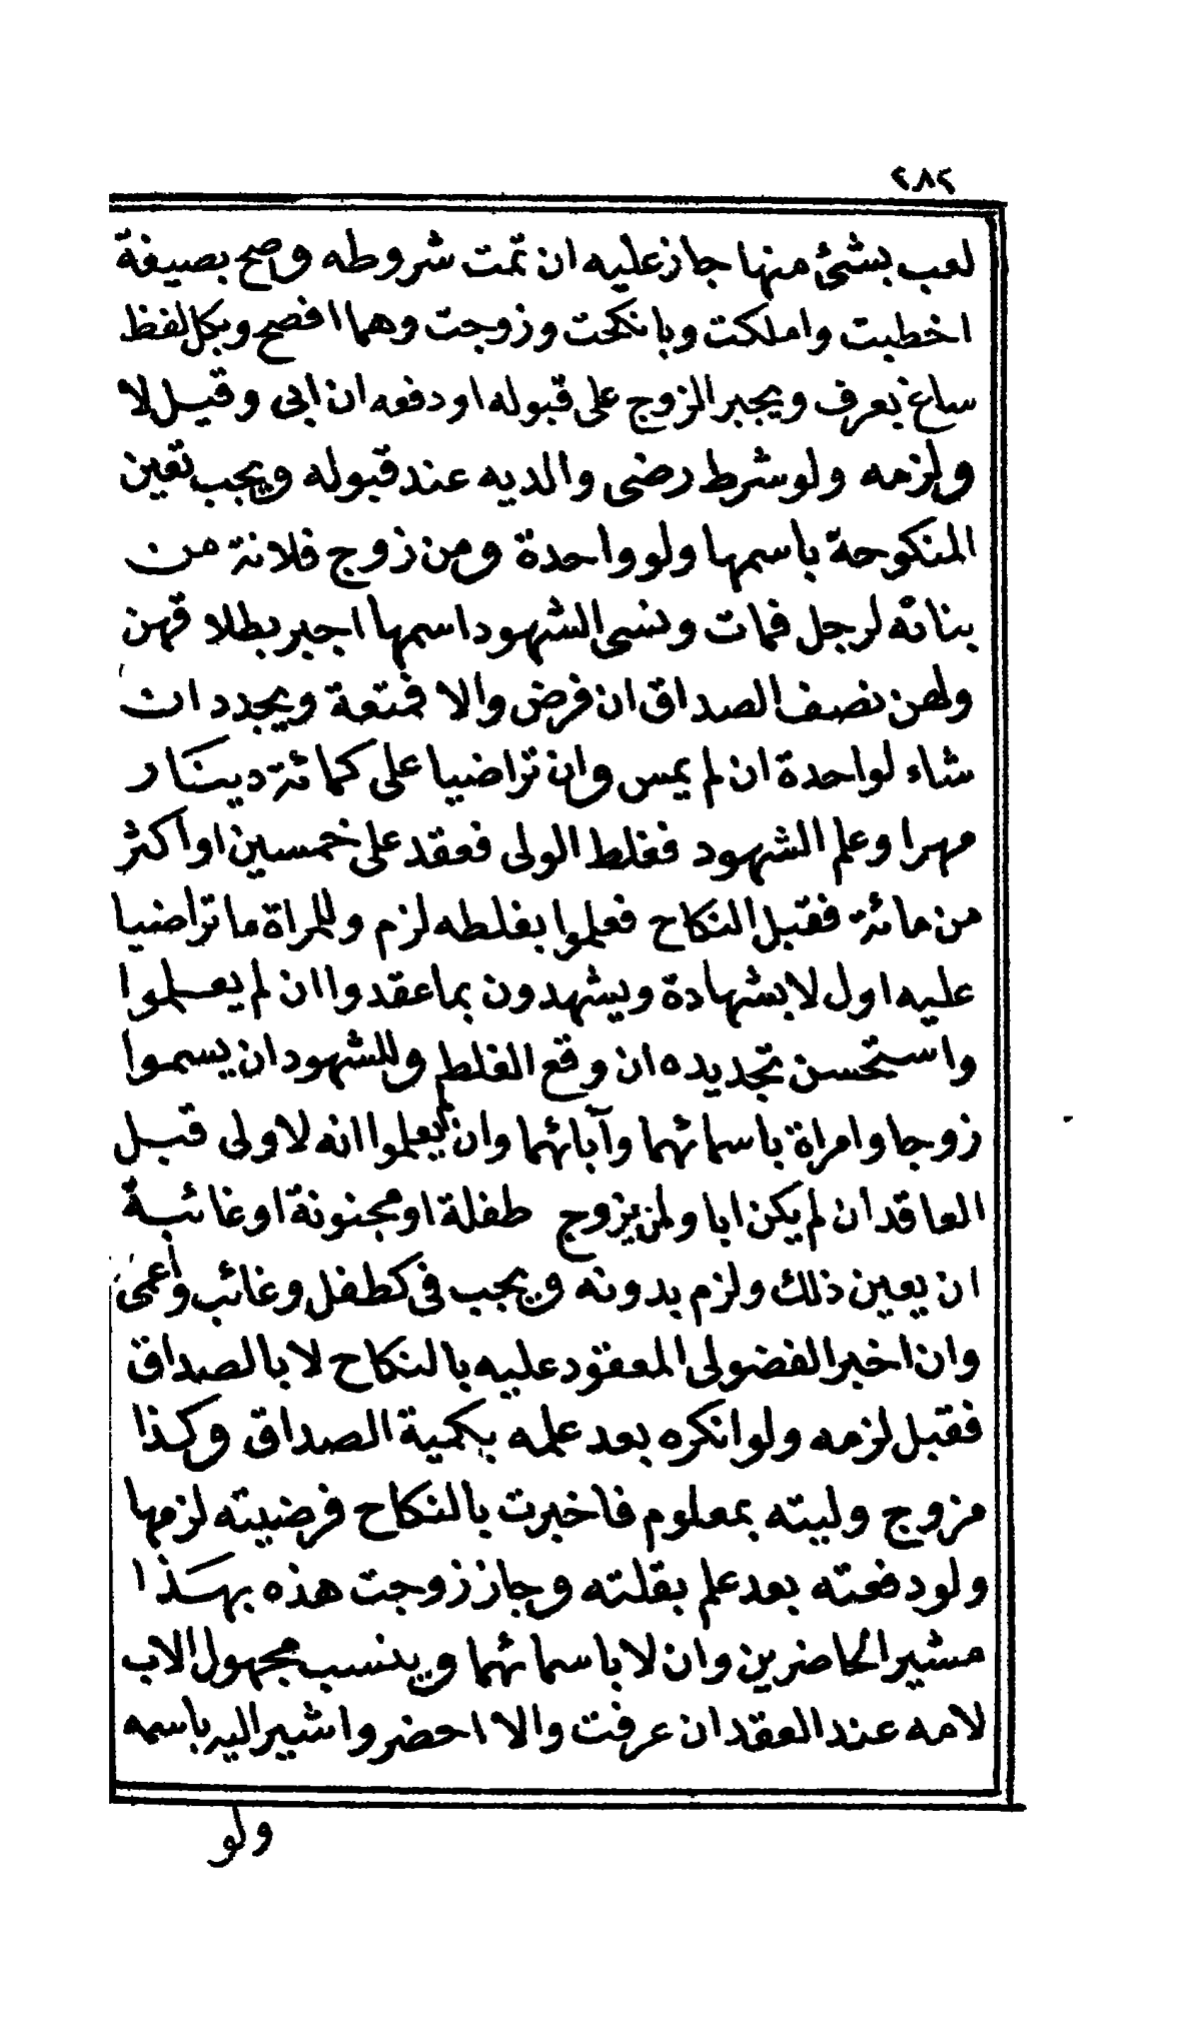 ٢٨٢
لعب بشئ منها جاز عليه ان تمت شروطه وصح بصيغة
اخطبت واملكت وبانكحت وزوجت وهما افصح وبكل لفظ
ساغ بعرف ويجبر الزوج على قبوله او دفعه ان ابى وقيل لا
ولزمه ولو شرط رضى والديه عند قبوله ويجب تعين
المنكوحة باسمها ولو واحدة ومن زوج فلانة من
بناته لرجل فمات ونسى الشهود اسمها اجبر بطلاقهن
ولهن نصف الصداق ان فرض والا فمتعة ويجدد ان
شاء لواحدة ان لم يمس وان تراضيا على كمائة دينار
مهرا وعلم الشهود فغلط الولى فعقد على خمسين او اكثر
من مائة فقبل النكاح فعلموا بغلطه لزم وللمراة ما تراضيا
عليه اول لا بشهادة ويشهدون بما عقدوا ان لم يعلموا
واستحسن تجديده ان وقع الغلط وللشهود ان يسموا
زوجا وامراة باسمائهما وآبائهما وان لم يعلموا انه لاولى قبل
العاقد ان لم يكن ابا ولمن يزوج طفلة او مجنونة او غائبة
ان يعين ذلك ولزم بدونه ويجب فى كطفل وغائب وأعمى
وان اخبر الفضولى المعقود عليه بالنكاح لا بالصداق
فقبل لزمه ولو انكره بعد علمه بكمية الصداق وكذا
مزوج وليته بمعلوم فاخبرت بالنكاح فرضيته لزمها
ولو دفعته بعد علم بقلته وجاز زوجت هذه بهذا
مشير الحاضرين وان لا باسمائهما وينسب مجهول الاب
لامه عند العقد ان عرفت والا احضر واشير اليه باسمه
ولو